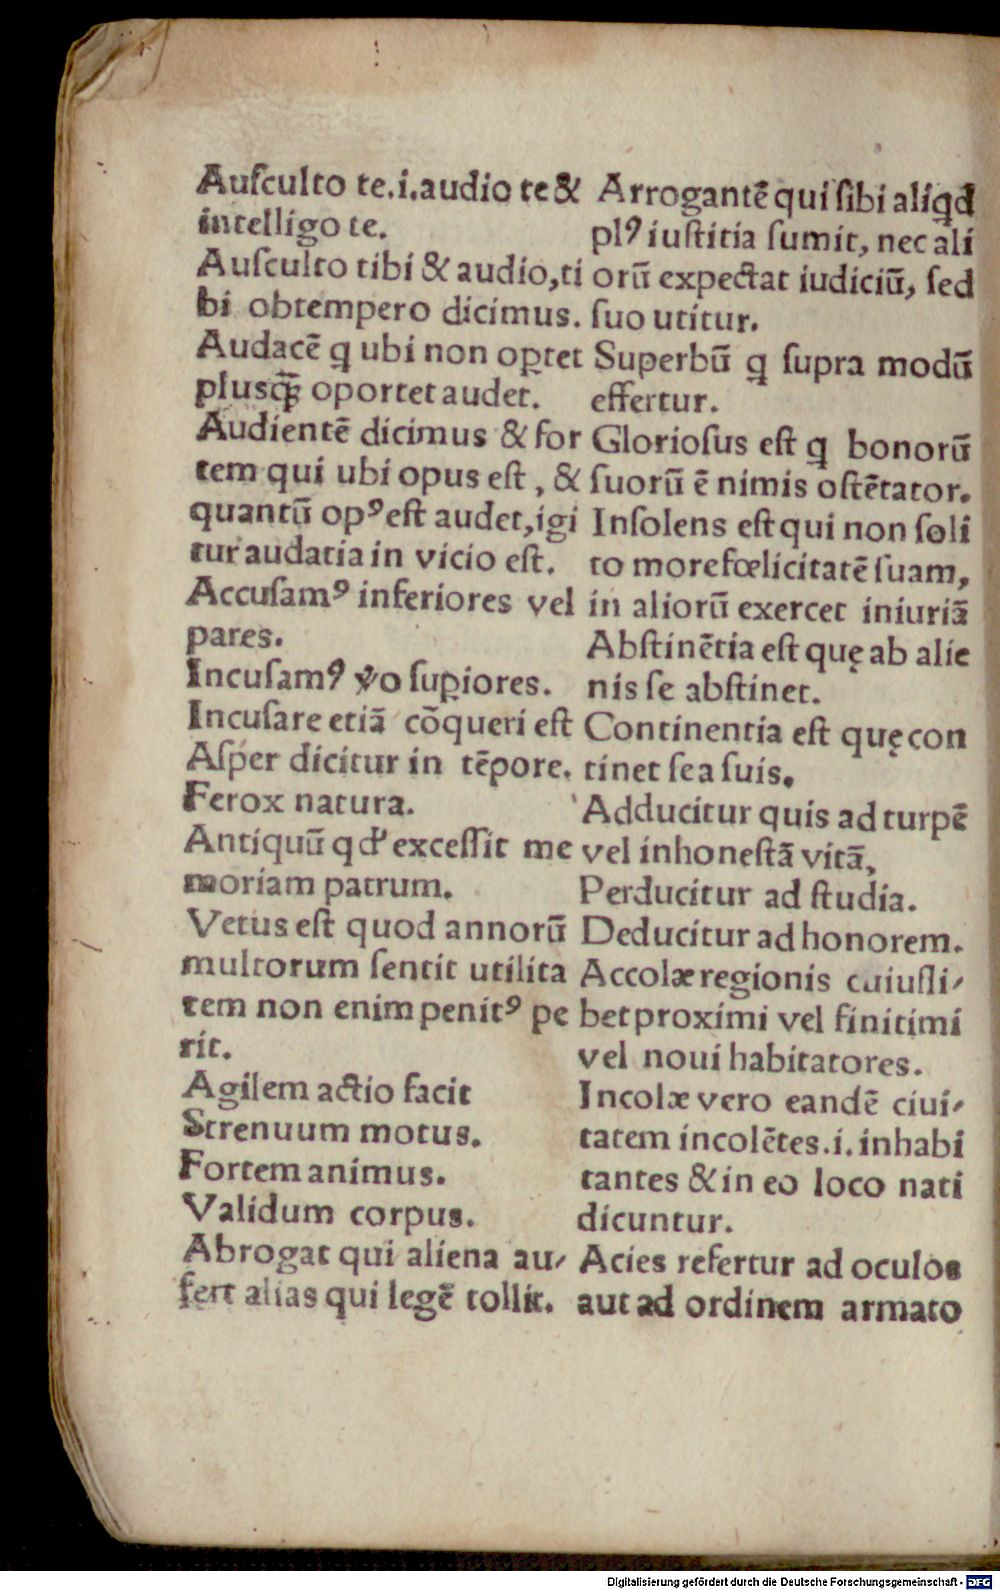 Auſculto te.i.audio te &
intelligo te.
Auſculto tibi & audio,ti
bi obtempero dicimus.
Audacē q ubi non oꝑtet
pluſqȝ̃ oportet audet.
Audientē dicimus & for
tem qui ubi opus eſt , &
quantū opꝰ eſt audet,igi
tur audatia in vicio eſt.
Accuſamꝰ inferiores vel
pares.
Incuſamꝰ ꝟo ſuꝑiores.
Incuſare etiā cōqueri eſt
Aſper dicitur in tēpore.
Ferox natura.
Antiquū qđ exceſſit me
moriam patrum.
Vetus eſt quod annorū
multorum ſentit utilita
tem non enim penitꝰ pe
rit.
Agilem actio facit
Strenuum motus.
Fortem animus.
Validum corpus.
Abrogat qui aliena au-
fert alias qui legē tollit.
Arrogantē qui ſibi aliqd
plꝰ iuſtitia ſumit, nec ali
orū expectat iudiciū, ſed
ſuo utitur.
Superbū q ſupra modū
effertur.
Glorioſus eſt q bonorū
ſuorū ē nimis oſtētator.
Inſolens eſt qui non ſoli
to more fœlicitatē ſuam,
in aliorū exercet iniuriā
Abſtinētia eſt quę ab alie
nis ſe abſtinet.
Continentia eſt quę con
tinet ſea ſuis.
Adducitur quis ad turpē
vel inhoneſtā vitā,
Perducitur ad ſtudia.
Deducitur ad honorem.
Accolæ regionis cuiuſli-
bet proximi vel finitimi
vel noui habitatores.
Incolæ vero eandē ciui-
tatem incolētes.i.inhabi
tantes & in eo loco nati
dicuntur.
Acies refertur ad oculos
aut ad ordinem armato
Digitalisierung gefördert durch die Deutsche Forschungsgemeinschaft - DFG